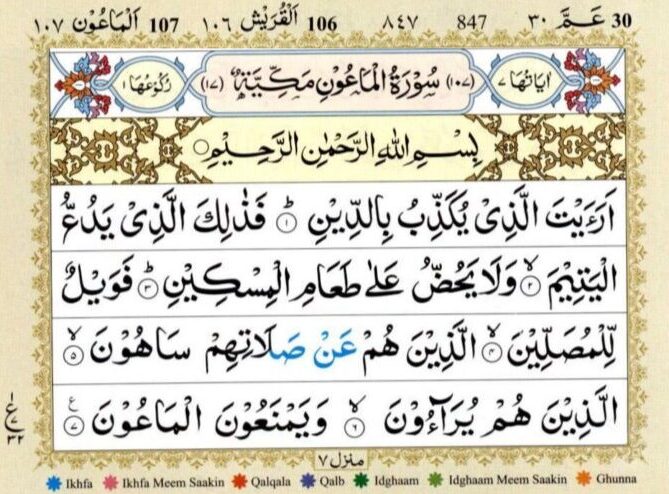 30 عَـمَّ ٣٠ 847 ٨٤٧ 106 اَلْقُرَيْش ١٠٦ 107 اَلْمَاعُوْن ١٠٧
اٰيَاتُهَا ٧ (١٠٧) سُوْرَةُ الْمَاعُوْنِ مَكِّيَّةٌ (١٧) رُكُوْعُهَا ١
بِسْمِ اللّٰهِ الرَّحْمٰنِ الرَّحِيْمِ
اَرَءَيْتَ الَّذِىْ يُكَذِّبُ بِالدِّيْنِ ؕ ١ فَذٰلِكَ الَّذِىْ يَدُعُّ
الْيَتِيْمَ ۙ ٢ وَلَا يَحُضُّ عَلٰى طَعَامِ الْمِسْكِيْنِ ؕ ٣ فَوَيْلٌ
لِّلْمُصَلِّيْنَ ۙ ٤ الَّذِيْنَ هُمْ عَنْ صَلَاتِهِمْ سَاهُوْنَ ۙ ٥
الَّذِيْنَ هُمْ يُرَآءُوْنَ ۙ ٦ وَيَمْنَعُوْنَ الْمَاعُوْنَ ٧ ع
١ ع ٧ ٣٢
منزل ٧
Ikhfa Ikhfa Meem Saakin Qalqala Qalb Idghaam Idghaam Meem Saakin Ghunna